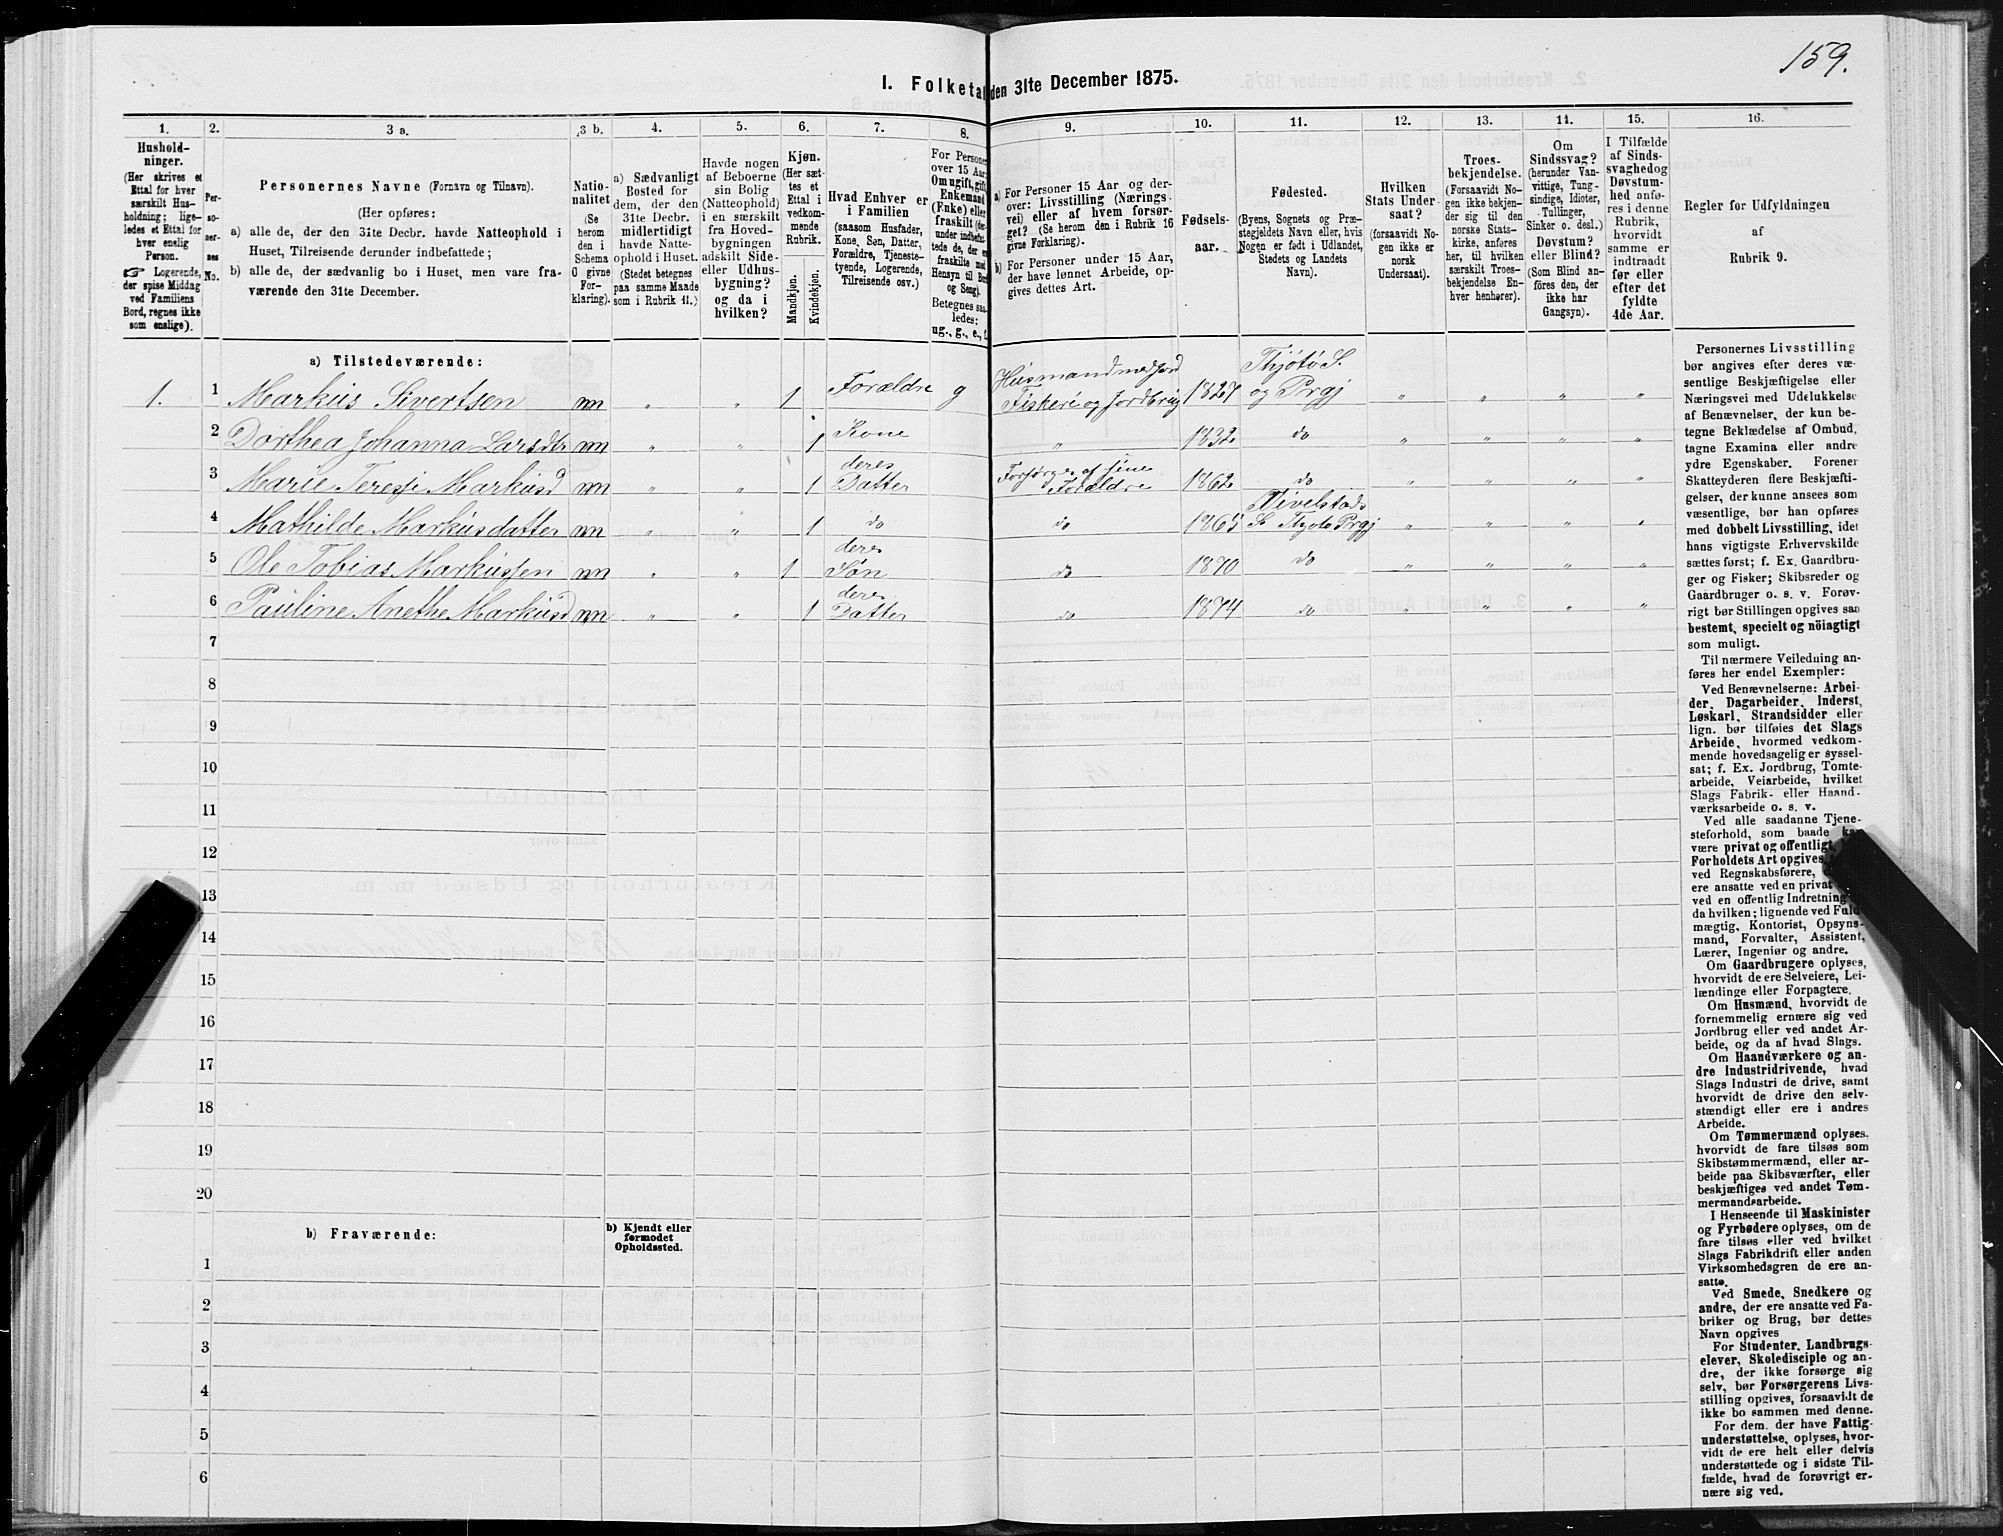 159.
I. Folketal den 31te December 1875.
1. 2. 3 a. 3 b. 4. 5. 6. 7. 8. 9. 10. 11. 12. 13. 14. 15. 16.
Hushold-
ninger.
(Her skrives et
Ettal for hver
særskilt Hus-
holdning; lige-
ledes et Ettal for
hver enslig
Person.
☞ Logerende,
der spise Middag
ved Familiens
Bord, regnes ikke
som enslige).
Per-
so-
ner-
nes
No.
Personernes Navne (Fornavn og Tilnavn).
(Her opføres:
a) alle de, der den 31te Decbr. havde Natteophold i
Huset, Tilreisende derunder indbefattede;
b) alle de, der sædvanlig bo i Huset, men vare fra-
værende den 31te December.
Natio-
nalitet
(Se
herom
den i
Schema
O givne
For-
klaring).
a) Sædvanligt
Bosted for
dem, der den
31te Decbr.
midlertidigt
havde Natte-
ophold i Huset.
(Stedet betegnes
paa samme Maade
som i Rubrik 11.)
Havde nogen
af Beboerne
sin Bolig
(Natteophold)
i en særskilt
fra Hoved-
bygningen
adskilt Side-
eller Udhus-
bygning?
og da i
hvilken?
Kjøn.
(Her sæt-
tes et
Ettal i
vedkom-
mende
Rubrik.
Mandkjøn.
Kvindekjøn.
Hvad Enhver er
i Familien
(saasom Husfader,
Kone, Søn, Datter,
Forældre, Tjeneste-
tyende, Logerende,
Tilreisende osv.)
For Personer
over 15 Aar:
Om ugift, gift,
Enkemand
(Enke) eller
fraskilt (der-
under indbefat-
tede de, der ere
fraskilte med
Hensyn til Bord
og Seng).
Betegnes saa-
ledes:
ug., g., e., f.
a) For Personer 15 Aar og der-
over: Livsstilling (Nærings-
vei) eller af hvem forsør-
get? (Se herom den i Rubrik 16
givne Forklaring).
b) For Personer under 15 Aar,
der have lønnet Arbeide, op-
gives dettes Art.
Fødsels-
aar.
Fødested.
(Byens, Sognets og Præ-
stegjeldets Navn eller, hvis
Nogen er født i Udlandet,
Stedets og Landets
Navn).
Hvilken
Stats Under-
saat?
(forsaavidt No-
gen ikke er
norsk
Undersaat).
Troes-
bekjendelse.
(Forsaavidt No-
gen ikke bekjen-
der sig til den
norske Stats-
kirke, anføres
her, til hvilken
særskilt Troes-
bekjendelse En-
hver henhører).
Om
Sindssvag?
(herunder Van-
vittige, Tung-
sindige, Idioter,
Tullinger,
Sinker o. desl.)
Døvstum?
eller Blind?
(Som Blind an-
føres den, der
ikke har
Gangsyn).
I Tilfælde
af Sinds-
svaghed og
Døvstum-
hed anfø-
res i denne
Rubrik,
hvorvidt
samme er
indtraadt
før eller
efter det
fyldte
4de Aar.
Regler for Udfyldningen
af
Rubrik 9.
a) Tilstedeværende:
1. 1 Markus Sivertsen nn „ „ 1 Forældre g Husmand med Jord Fiskeri og Jordbrug 1827 Thjøtø S. og Prgj „ „ „ „
2 Dorthea Johanna Larsdtr nn „ „ 1 Kone „ 1832 do „ „ „ „
3 Marie Teresi Markusd nn „ „ 1 deres Datter Forsørges af sine Forældre 1862 do „ „ „ „
4 Mathilde Markusdatter nn „ „ 1 do do 1865 Vivelstads S. Thjøtø Prgj „ „ „ „
5 Ole Tobias Markussen nn „ „ 1 deres Søn do 1870 do „ „ „ „
6 Pauline Anethe Markusd nn „ „ 1 deres Datter do 1874 do „ „ „ „
7
8
9
10
11
12
13
14
15
16
17
18
19
20
b) Fraværende:
b) Kjendt eller
formodet
Opholdssted.
1
2
3
4
5
6
Personernes Livsstilling
bør angives efter deres væ-
sentlige Beskjæftigelse eller
Næringsvei med Udelukkelse
af Benævnelser, der kun be-
tegne Beklædelse af Ombud,
tagne Examina eller andre
ydre Egenskaber. Forener
Skatteyderen flere Beskjæfti-
gelser, der kunne ansees som
væsentlige, bør han opføres
med dobbelt Livsstilling, idet
hans vigtigste Erhvervskilde
sættes først; f. Ex. Gaardbru-
ger og Fisker; Skibsreder og
Gaardbruger o. s. v. Forøv-
rigt bør Stillingen opgives saa
bestemt, specielt og nöiagtigt
som muligt.
Til nærmere Veiledning an-
føres her endel Exempler:
Ved Benævnelserne: Arbei-
der, Dagarbeider, Inderst,
Løskarl, Strandsidder eller
lign. bør tilføies det Slags
Arbeide, hvormed vedkom-
mende hovedsagelig er syssel-
sat; f. Ex. Jordbrug, Tomte-
arbeide, Veiarbeide, hvilket
Slags Fabrik- eller Haand-
værksarbeide o. s. v.
Ved alle saadanne Tjene-
steforhold, som baade kan
være privat og offentligt
Forholdets Art opgives,
ved Regnskabsførere,
ere ansatte ved en privat
ved en offentlig Indretning
da hvilken; lignende ved Fuld-
mægtig, Kontorist, Opsyns-
mand, Forvalter, Assistent,
Lærer, Ingeniør og andre.
Om Gaardbrugere oplyses,
hvorvidt de ere Selveiere, Lei-
lændinge eller Forpagtere.
Om Husmænd, hvorvidt de
fornemmelig ernære sig ved
Jordbrug eller ved andet Ar-
beide, og da af hvad Slags.
Om Haandværkere og an-
dre Industridrivende, hvad
Slags Industri de drive, samt
hvorvidt de drive den selv-
stændigt eller ere i andres
Arbeide.
Om Tømmermænd oplyses,
hvorvidt de fare tilsøs som
Skibstømmermænd, eller ar-
beide paa Skibsværfter, eller
beskjæftiges ved andet Tøm-
mermandsarbeide.
I Henseende til Maskinister
og Fyrbødere oplyses, om de
fare tilsøs eller ved hvilket
Slags Fabrikdrift eller anden
Virksomhedsgren de ere an-
satte.
Ved Smede, Snedkere og
andre, der ere ansatte ved Fa-
briker og Brug, bør dettes
Navn opgives
For Studenter, Landbrugs-
elever, Skoledisciple og an-
dre, der ikke forsørge sig
selv, bør Forsørgerens Livs-
stilling opgives, forsaavidt de
ikke bo sammen med denne.
For dem, der have Fattig-
understøttelse, oplyses, hvor-
vidt de ere helt eller delvis
understøttede og i sidste Til-
fælde, hvad de forøvrigt er-
nære sig ved.